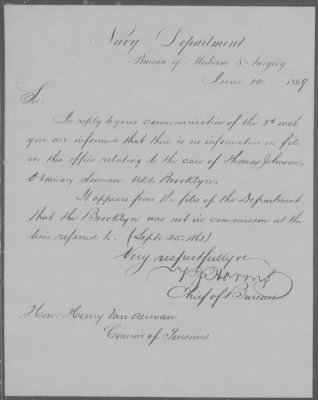 Navy Department
Bureau of Medicine & Surgery
June 10, 1869
Sir:
In reply to your communication of the 8th inst.
you are informed that there is no information on file
in this office relating to the case of Thomas Johnson,
Ordinary Seaman, U.S.S. Brooklyn.
It appears from the files of the Department
that the Brooklyn was not in commission at the
time referred to. (Septr 20th 1863)
Very respectfully &c
Chief of Bureau
Hon. Henry Van Aernam
Commr of Pensions